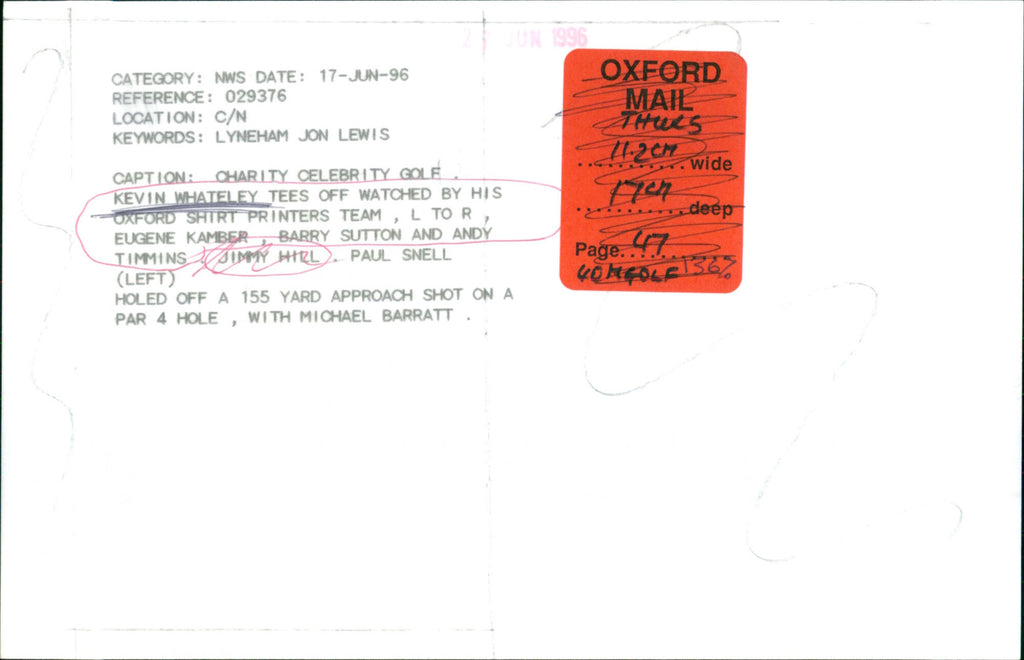 JUN 1996
CATEGORY: NWS DATE: 17-JUN-96
REFERENCE: 029376
LOCATION: C/N
KEYWORDS: LYNEHAM JON LEWIS
CAPTION: CHARITY CELEBRITY GOLF .
KEVIN WHATELEY TEES OFF WATCHED BY HIS
OXFORD SHIRT PRINTERS TEAM , L TO R ,
EUGENE KAMBER , BARRY SUTTON AND ANDY
TIMMINS JIMMY HILL . PAUL SNELL
(LEFT)
HOLED OFF A 155 YARD APPROACH SHOT ON A
PAR 4 HOLE , WITH MICHAEL BARRATT .
OXFORD
MAIL
THURS
11.2CM wide
17CM deep
Page 47
156%